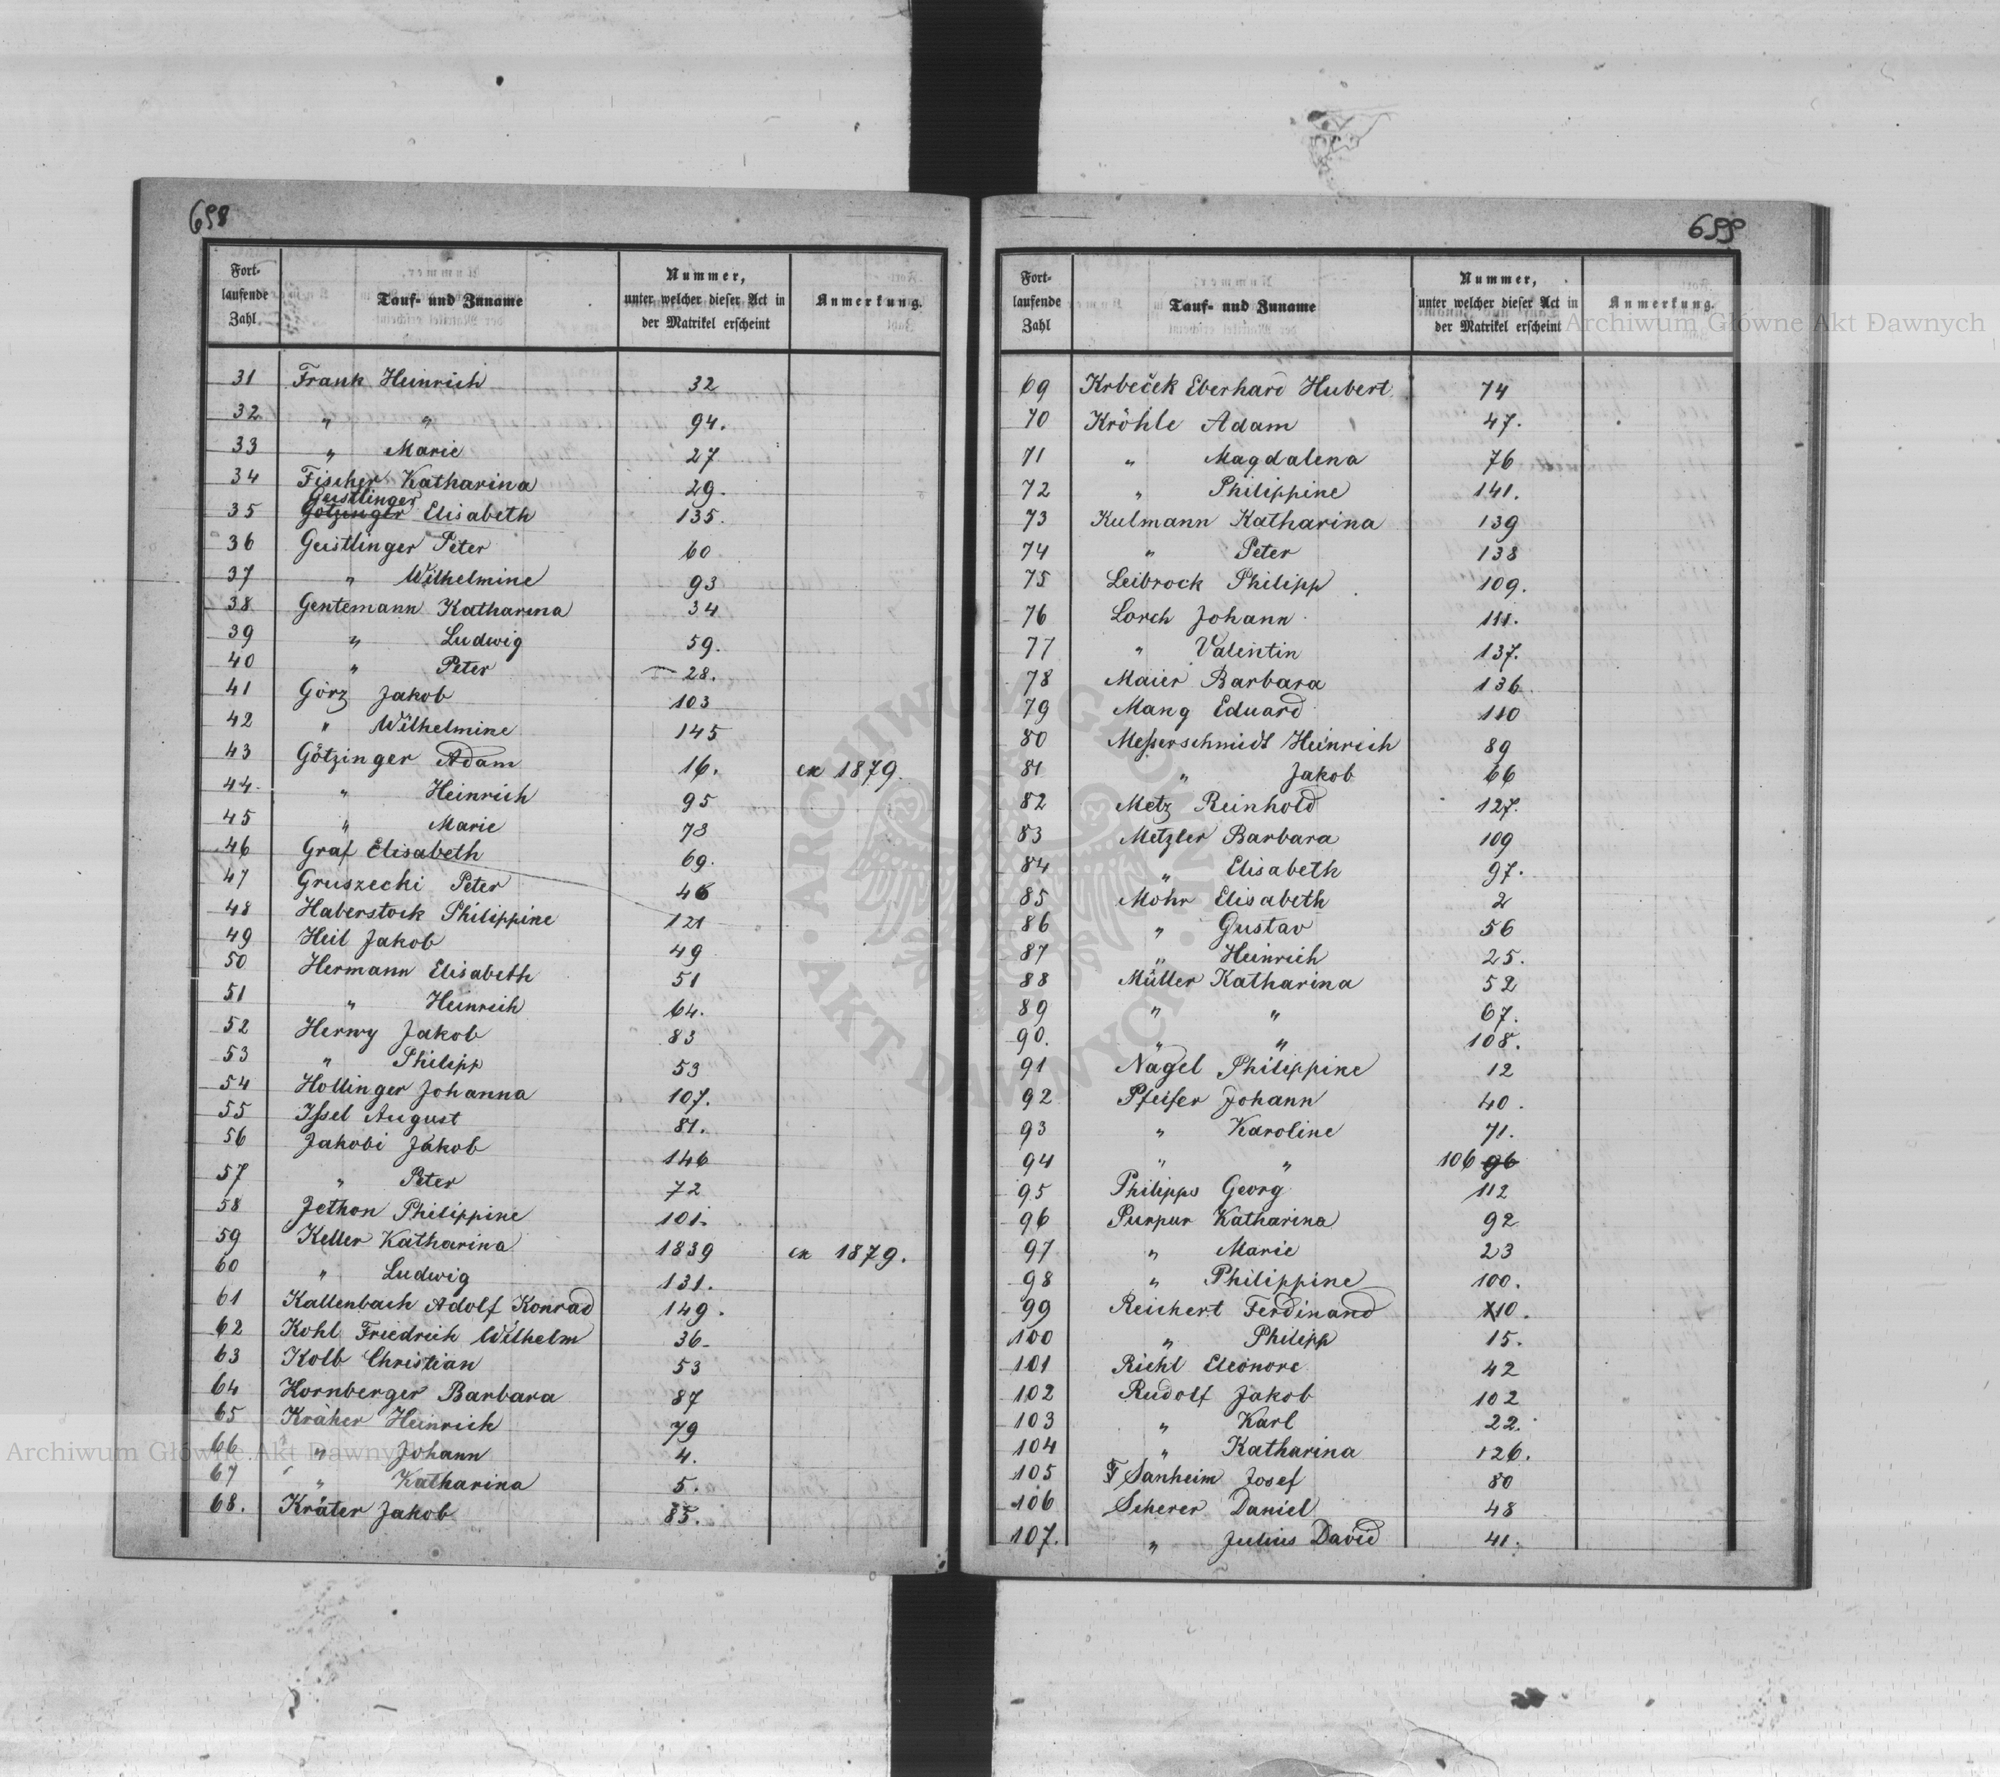 698
Fortlaufende Zahl | Tauf- und Zuname | Nummer, unter welcher dieser Act in der Matrikel erscheint | Anmerkung.
31 Frank Heinrich 32
32 " " 94.
33 " Marie 27
34 Fischer Katharina 29.
Geistlinger
35 Götzinger Elisabeth 135.
36 Geistlinger Peter 60
37 " Wilhelmine 93
38 Gentemann Katharina 34
39 " Ludwig 59.
40 " Peter 28.
41 Görz Jakob 103
42 " Wilhelmine 145
43 Götzinger Adam 16. ex 1879.
44. " Heinrich 95
45 " Marie 73
46 Graf Elisabeth 69.
47 Gruszecki Peter 46
48 Haberstock Philippine 121
49 Heil Jakob 49
50 Hermann Elisabeth 51
51 " Heinrich 64.
52 Herwy Jakob 83
53 " Philipp 53
54 Hollinger Johanna 107.
55 Issel August 81.
56 Jakobi Jakob 146
57 " Peter 72
58 Jethon Philippine 101.
59 Keller Katharina 1839 ex 1879.
60 " Ludwig 131.
61 Kallenbach Adolf Konrad 149.
62 Kohl Friedrich Wilhelm 36
63 Kolb Christian 53
64 Kornberger Barbara 87
65 Kräher Heinrich 79
66 " Johann 4.
67 " Katharina 5.
68. Kräter Jakob 85.
699
Fortlaufende Zahl | Tauf- und Zuname | Nummer, unter welcher dieser Act in der Matrikel erscheint | Anmerkung.
69 Krbeček Eberhard Hubert 74
70 Kröhle Adam 47.
71 " Magdalena 76
72 " Philippine 141.
73 Kulmann Katharina 139
74 " Peter 138
75 Leibrock Philipp 109.
76 Lorch Johann 111.
77 " Valentin 137.
78 Maier Barbara 136
79 Mang Eduard 110
80 Messerschmidt Heinrich 89
81 " Jakob 66
82 Metz Reinhold 127.
83 Metzler Barbara 109
84 " Elisabeth 97.
85 Mohr Elisabeth 2
86 " Gustav 56
87 " Heinrich 25.
88 Müller Katharina 52
89 " " 67.
90. " " 108.
91 Nagel Philippine 12
92 Pfeifer Johann 40.
93 " Karoline 71.
94 " " 106 96
95 Philipps Georg 112
96 Purpur Katharina 92
97 " Marie 23
98 " Philippine 100.
99 Reichert Ferdinand 10.
100 " Philipp 15.
101 Richl Eleonore 42
102 Rudolf Jakob 102
103 " Karl 22.
104 " Katharina 126.
105 Sanheim Josef 80
106 Scherer Daniel 48
107. " Julius David 41.
Archiwum Główne Akt Dawnych
Archiwum Główne Akt Dawnych
ARCHIWUM GŁÓWNE · AKT DAWNYCH ·